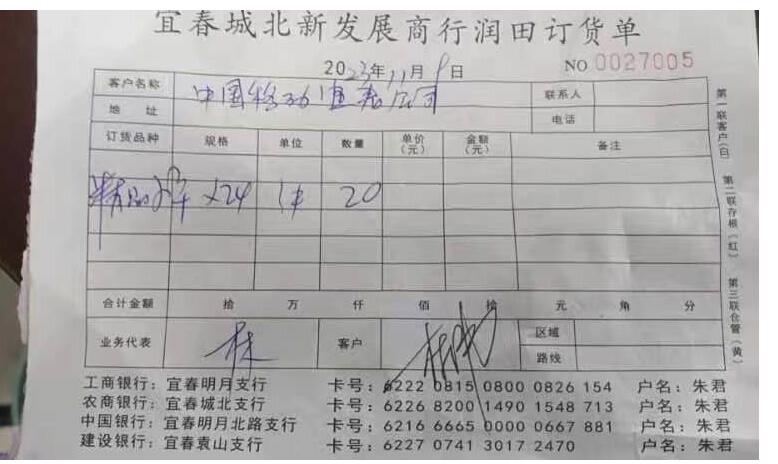 宜春城北新发展商行润田订货单
2023年11月9日 NO 0027005
客户名称 中国移动宜春公司 联系人
地 址 电话
订货品种 规格 单位 数量 单价(元) 金额(元) 备注
×24 件 20
合计金额 拾 万 仟 佰 拾 元 角 分
业务代表 林 客户 区域
路线
工商银行：宜春明月支行 卡号：6222 0815 0800 0826 154 户名：朱君
农商银行：宜春城北支行 卡号：6226 8200 1490 1548 713 户名：朱君
中国银行：宜春明月北路支行 卡号：6216 6665 0000 0667 881 户名：朱君
建设银行：宜春袁山支行 卡号：6227 0741 3017 2470 户名：朱君
第一联客户(白) 第二联存根(红) 第三联仓管(黄)